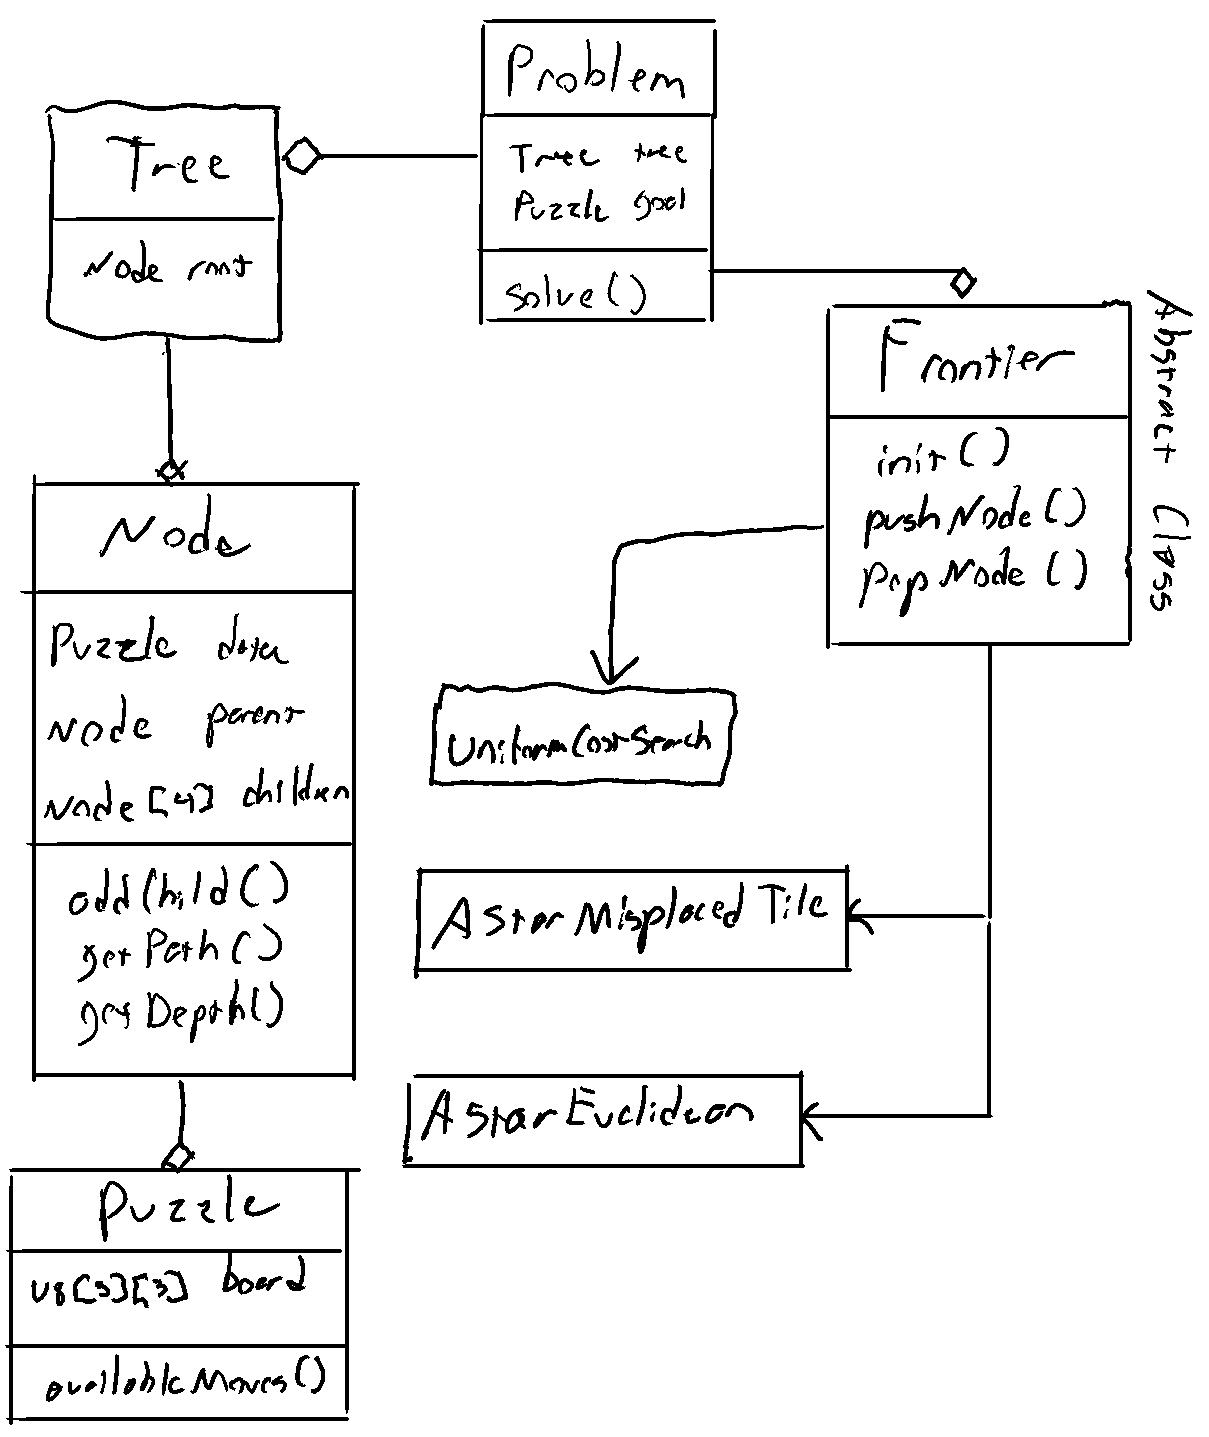 Problem
Tree tree
Puzzle goal
solve()
Tree
Node root
Frontier
init()
pushNode()
popNode()
Abstract Class
Node
Puzzle data
Node parent
Node[4] children
addChild()
getPath()
getDepth()
UniformCostSearch
AStarMisplacedTile
AStarEuclidean
Puzzle
u8[3][3] board
availableMoves()